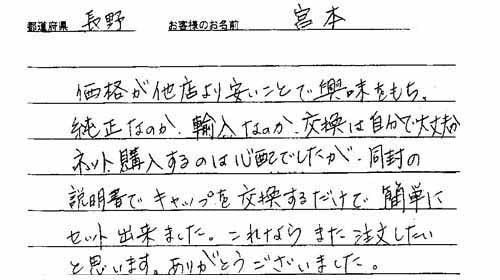 都道府県 長野 お客様のお名前 宮本
価格が他店より安いことで興味をもち、
純正なのか、輸入なのか、交換は自分で大丈夫か
ネット購入するのは心配でしたが、同封の
説明書でキャップを交換するだけで簡単に
セット出来ました。これならまた注文したい
と思います。ありがとうございました。